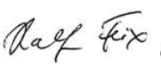 Ralf Feix